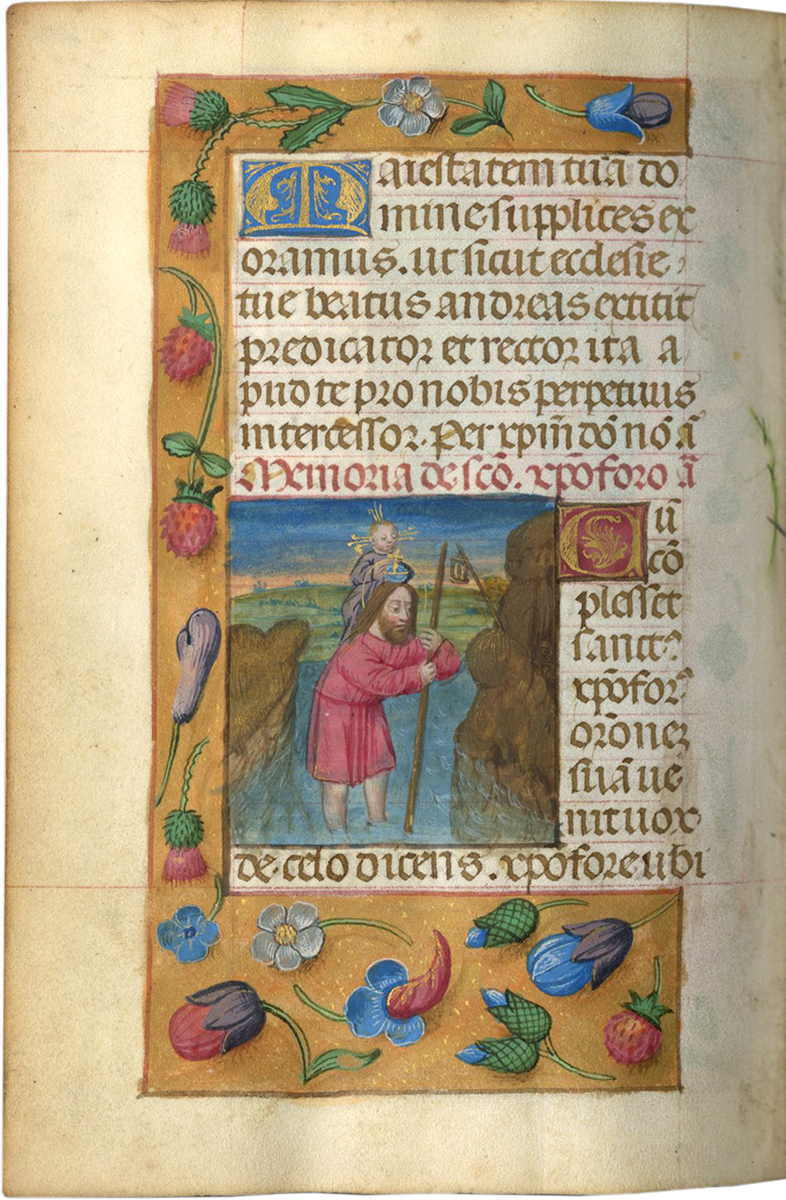 Maiestatem tuā do
mine supplices ex
oramus. ut sicut ecclesie
tue beatus andreas extitit
predicator et rector ita a
pud te pro nobis perpetuus
intercessor. Per xp̄m dō nō ā
Memoria de scō. xp̄oforo ā
Cū
cō
plesset
sanct9
xp̄ofor9
orōnez
suā ue
nit uox
de celo dicens. xp̄ofore ubi